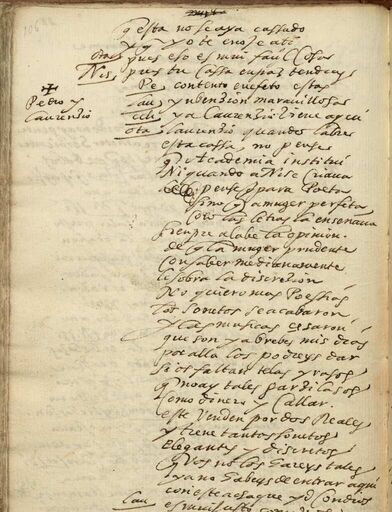 q esta no se aya cassado
y q yo te enoje a ti
ota. pues eso es muy facil Cosa
Nis. pues tu Cassa en paz tendras
✠
Pedro y
Laurenzio
Pe. contento en efeto estas
Lau. ynbenzion maravillosa
Celi. ya Laurenzio viene aqui
ota. Laurenzio quando labre
esta cassa no pense
q Academia institui
Ni quando a Nise Criaua
pense q para Poeta
sino q a muger perfeta
Con las letras la enseñaua
siempre alabe la opinion
de q a la muger prudente
Con saber medianamente
le sobra la discrezion
No quiero mas Poessias
los sonetos se acabaron
y las musicas cesaron
que son ya brebes mis dias
por alla los podreys dar
si os faltan telas y rasos
q no ay tales garcilasos
Como dinero y Callar
este venden por dos Reales
y tiene tantos sonetos
elegantes y discretos
q vos no los hareys tales
ya no habeys de entrar aqui
con este achaque yd con dios
Lau. es muy justo